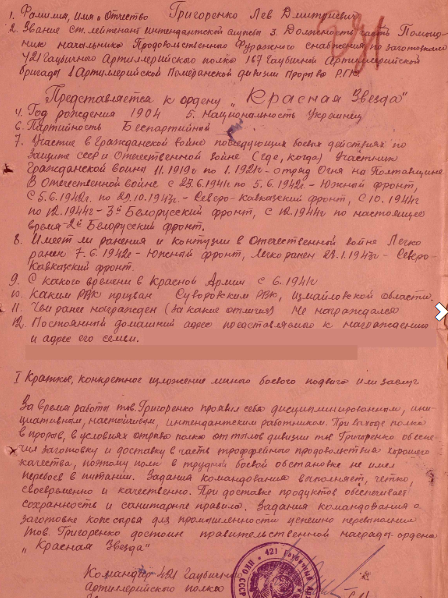 1. Фамилия, имя и Отчество Григоренко Лев Дмитриевич
2. Звание ст. лейтенант интендантской службы 3. Должность, часть Помощ-
ник начальника Продовольственно Фуражного снабжения по заготовкам
421 Гаубичного Артиллерийского полка 167 Гаубичной Артиллерийской
бригады 1 Артиллерийской дивизии Прорыва РГК
Представляется к ордену „Красная Звезда"
4. Год рождения 1904 5. Национальность Украинец
6. Партийность Беспартийный
7. Участие в Гражданской войне последующих боевых действиях по
защите СССР и Отечественной войне (где, когда) Участник
Гражданской войны 11.1919г по 1.1921г - отряд на Полтавщине
В Отечественной войне с 29.6.1941г по 5.6.1942г - Южной фронт,
с 5.6.1942г. по 29.10.1943г. - Северо-Кавказский фронт, с 10.1944г
по 12.1944г - 3й Белорусский фронт, с 12.1944г по настоящее
время - 2й Белорусский фронт.
8. Имеет ли ранения и контузии в Отечественной войне Легко
ранен 7.6.1942г - Южной фронт, Легко ранен 29.1.1943г - Северо-
Кавказский фронт.
9. С какого времени в Красной Армии с 6.1941г
10. Каким РВК призван Суворовским РВК, Измаиловской области
11. Чем ранее награжден (за какие отличия) Не награждался
12. Постоянный домашний адрес представляемого к награждению
и адрес его семьи.
I Краткое, конкретное изложение личного боевого подвига или заслуг
За время работы тов. Григоренко проявил себя дисциплинированным, ини-
циативным, настойчивым, интендантским работником. При выходе полка
в прорыв, в условиях отрыва полка от тылов дивизии тов Григоренко обеспе-
чил заготовку и доставку в часть трофейного продовольствия хорошего
качества, поэтому полк в трудной боевой обстановке не имел
перебоев в питании. Задания командования выполняет, четко,
своевременно и качественно. При доставке продуктов обеспечивает
сохранность и санитарные правила. Задания командования о
заготовке для промышленности успешно перевыполнил
Тов. Григоренко достоин правительственной награды ордена
„Красная Звезда"
Командир 421 Гаубичного
Артиллерийского полка